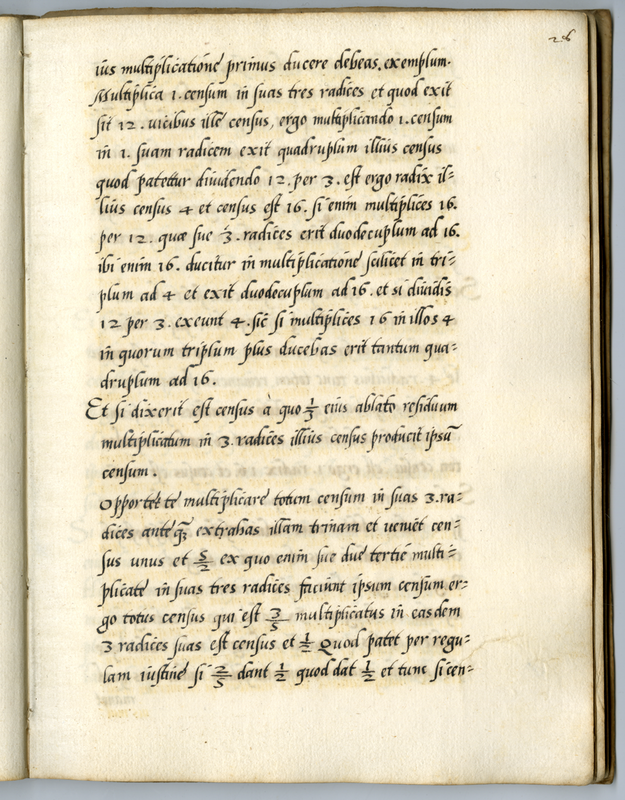 26
ius multiplicatione primus ducere debeas. exemplum.
Multiplica 1. censum in suas tres radices et quod exit
sit 12. vicibus ille census, ergo multiplicando 1. censum
in 1. suam radicem exit quadruplum illius census
quod patettur diuidendo 12. per 3. est ergo radix il=
lius census 4 et census est 16. si enim multiplices 16.
per 12. quæ sue 3. radices erit duodecuplum ad 16.
ibi enim 16. ducitur in multiplicatione scilicet in tri=
plum ad 4 et exit duodecuplum ad 16. et si diuidis
12 per 3. exeunt 4. sic si multiplices 16 in illos 4
in quorum triplum plus ducebas erit tantum qua=
druplum ad 16.
Et si dixerit est census à quo 1/3 eius ablato residuum
multiplicatum in 3. radices illius census producit ipsũ
censum.
Opportet te multiplicare totum censum in suas 3. ra=
dices ante extrahas illam trinam et veniet cen=
sus unus et 5/2 ex quo enim sue due tertie multi=
plicate in suas tres radices faciunt ipsum censum er=
go totus census qui est 3/5 multiplicatus in easdem
3 radices suas est census et 1/2 Quod patet per regu=
lam iustine si 2/5 dant 1/2 quod dat 1/2 et tunc si cen=